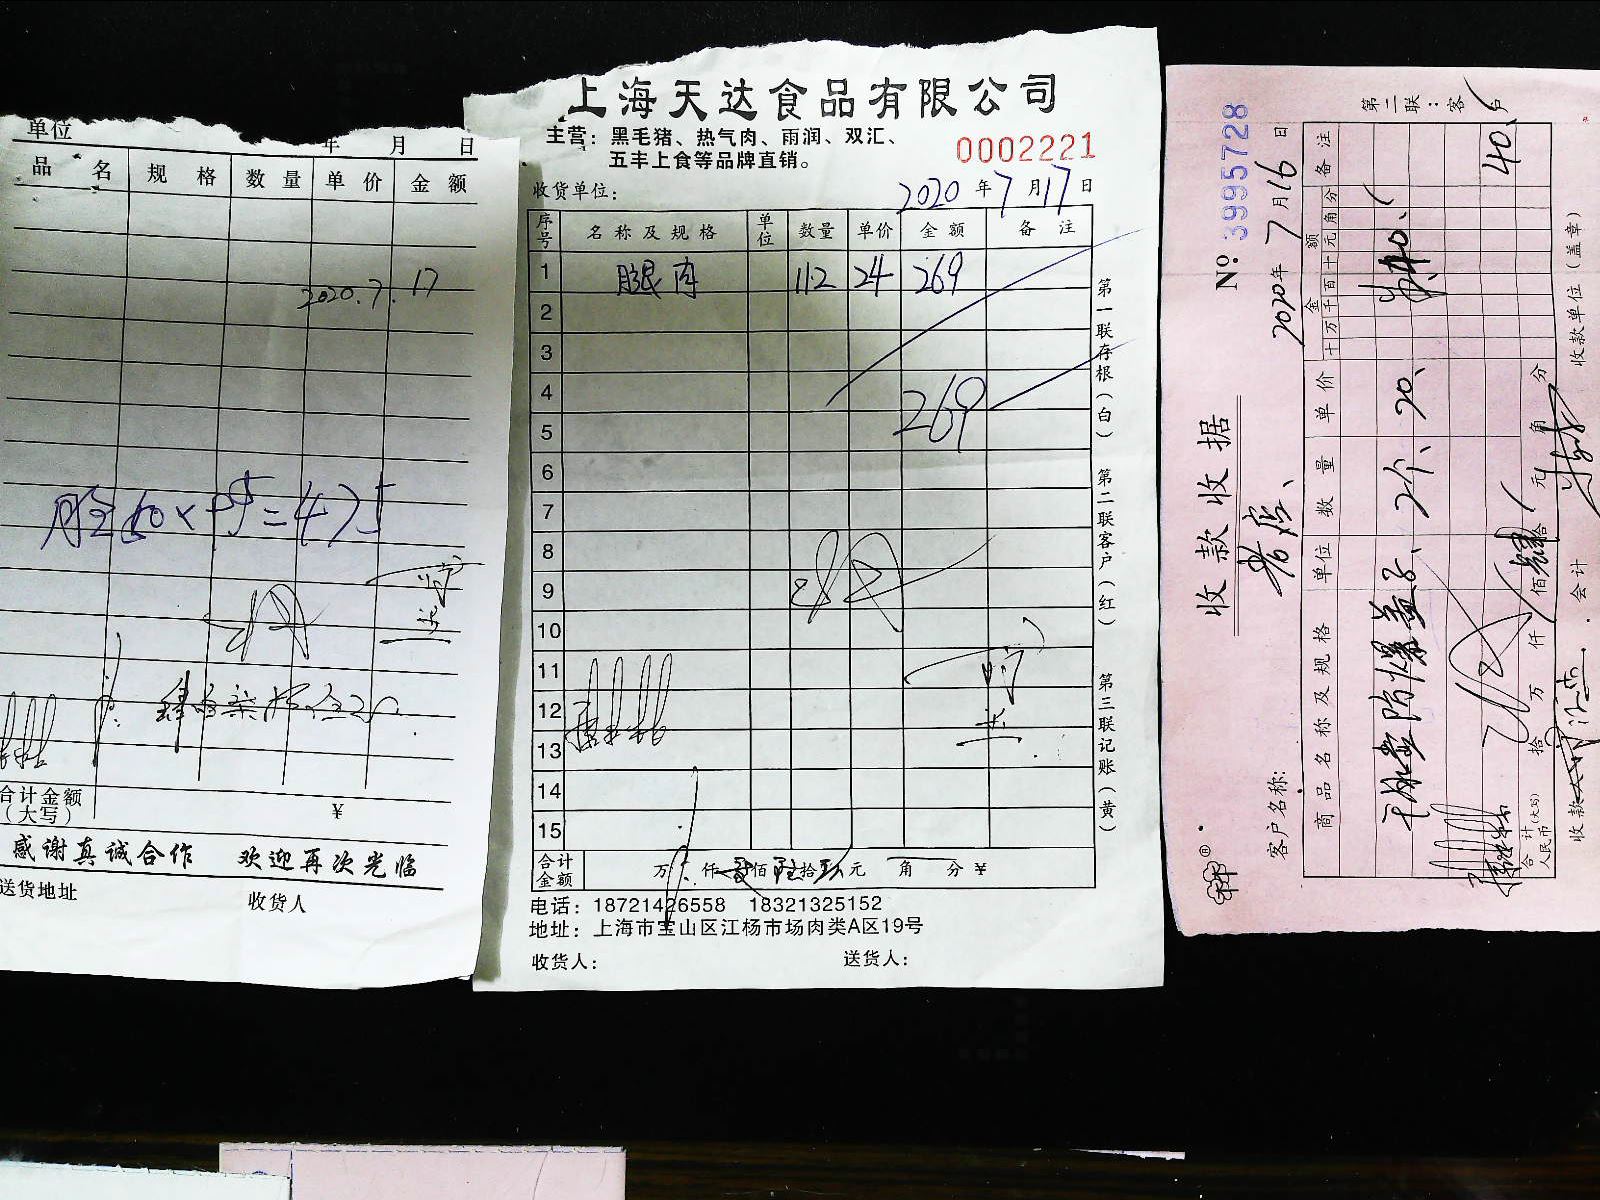 单位 年 月 日
品 名 规 格 数 量 单 价 金 额
2020.7.17
=475
合计金额
（大写） ¥
感谢真诚合作 欢迎再次光临
送货地址 收货人
上海天达食品有限公司
主营：黑毛猪、热气肉、雨润、双汇、
五丰上食等品牌直销。
0002221
收货单位： 2020 年 7 月 17 日
序号 名 称 及 规 格 单位 数量 单价 金 额 备 注
1 腿肉 112 24 269
2
3
4 269
5
6
7
8
9
10
11
12
13
14
15
合计金额 万 仟 佰 陆拾 玖元 角 分 ¥
电话：18721426558 18321325152
地址：上海市宝山区江杨市场肉类A区19号
收货人： 送货人：
第一联存根（白） 第二联客户（红） 第三联记账（黄）
收款收据
№ 3995728
客户名称： 老店、 2020年 7月16日
商 品 名 称 及 规 格 单位 数 量 单 价 金 额 备 注
十万千百十元角分
防爆盖子、 2个、 20、 40、
40、
合计人民币(大写) 拾 万 仟 佰 肆拾 元 角 分
收款人 会计 收款单位（盖章）
第二联：客户